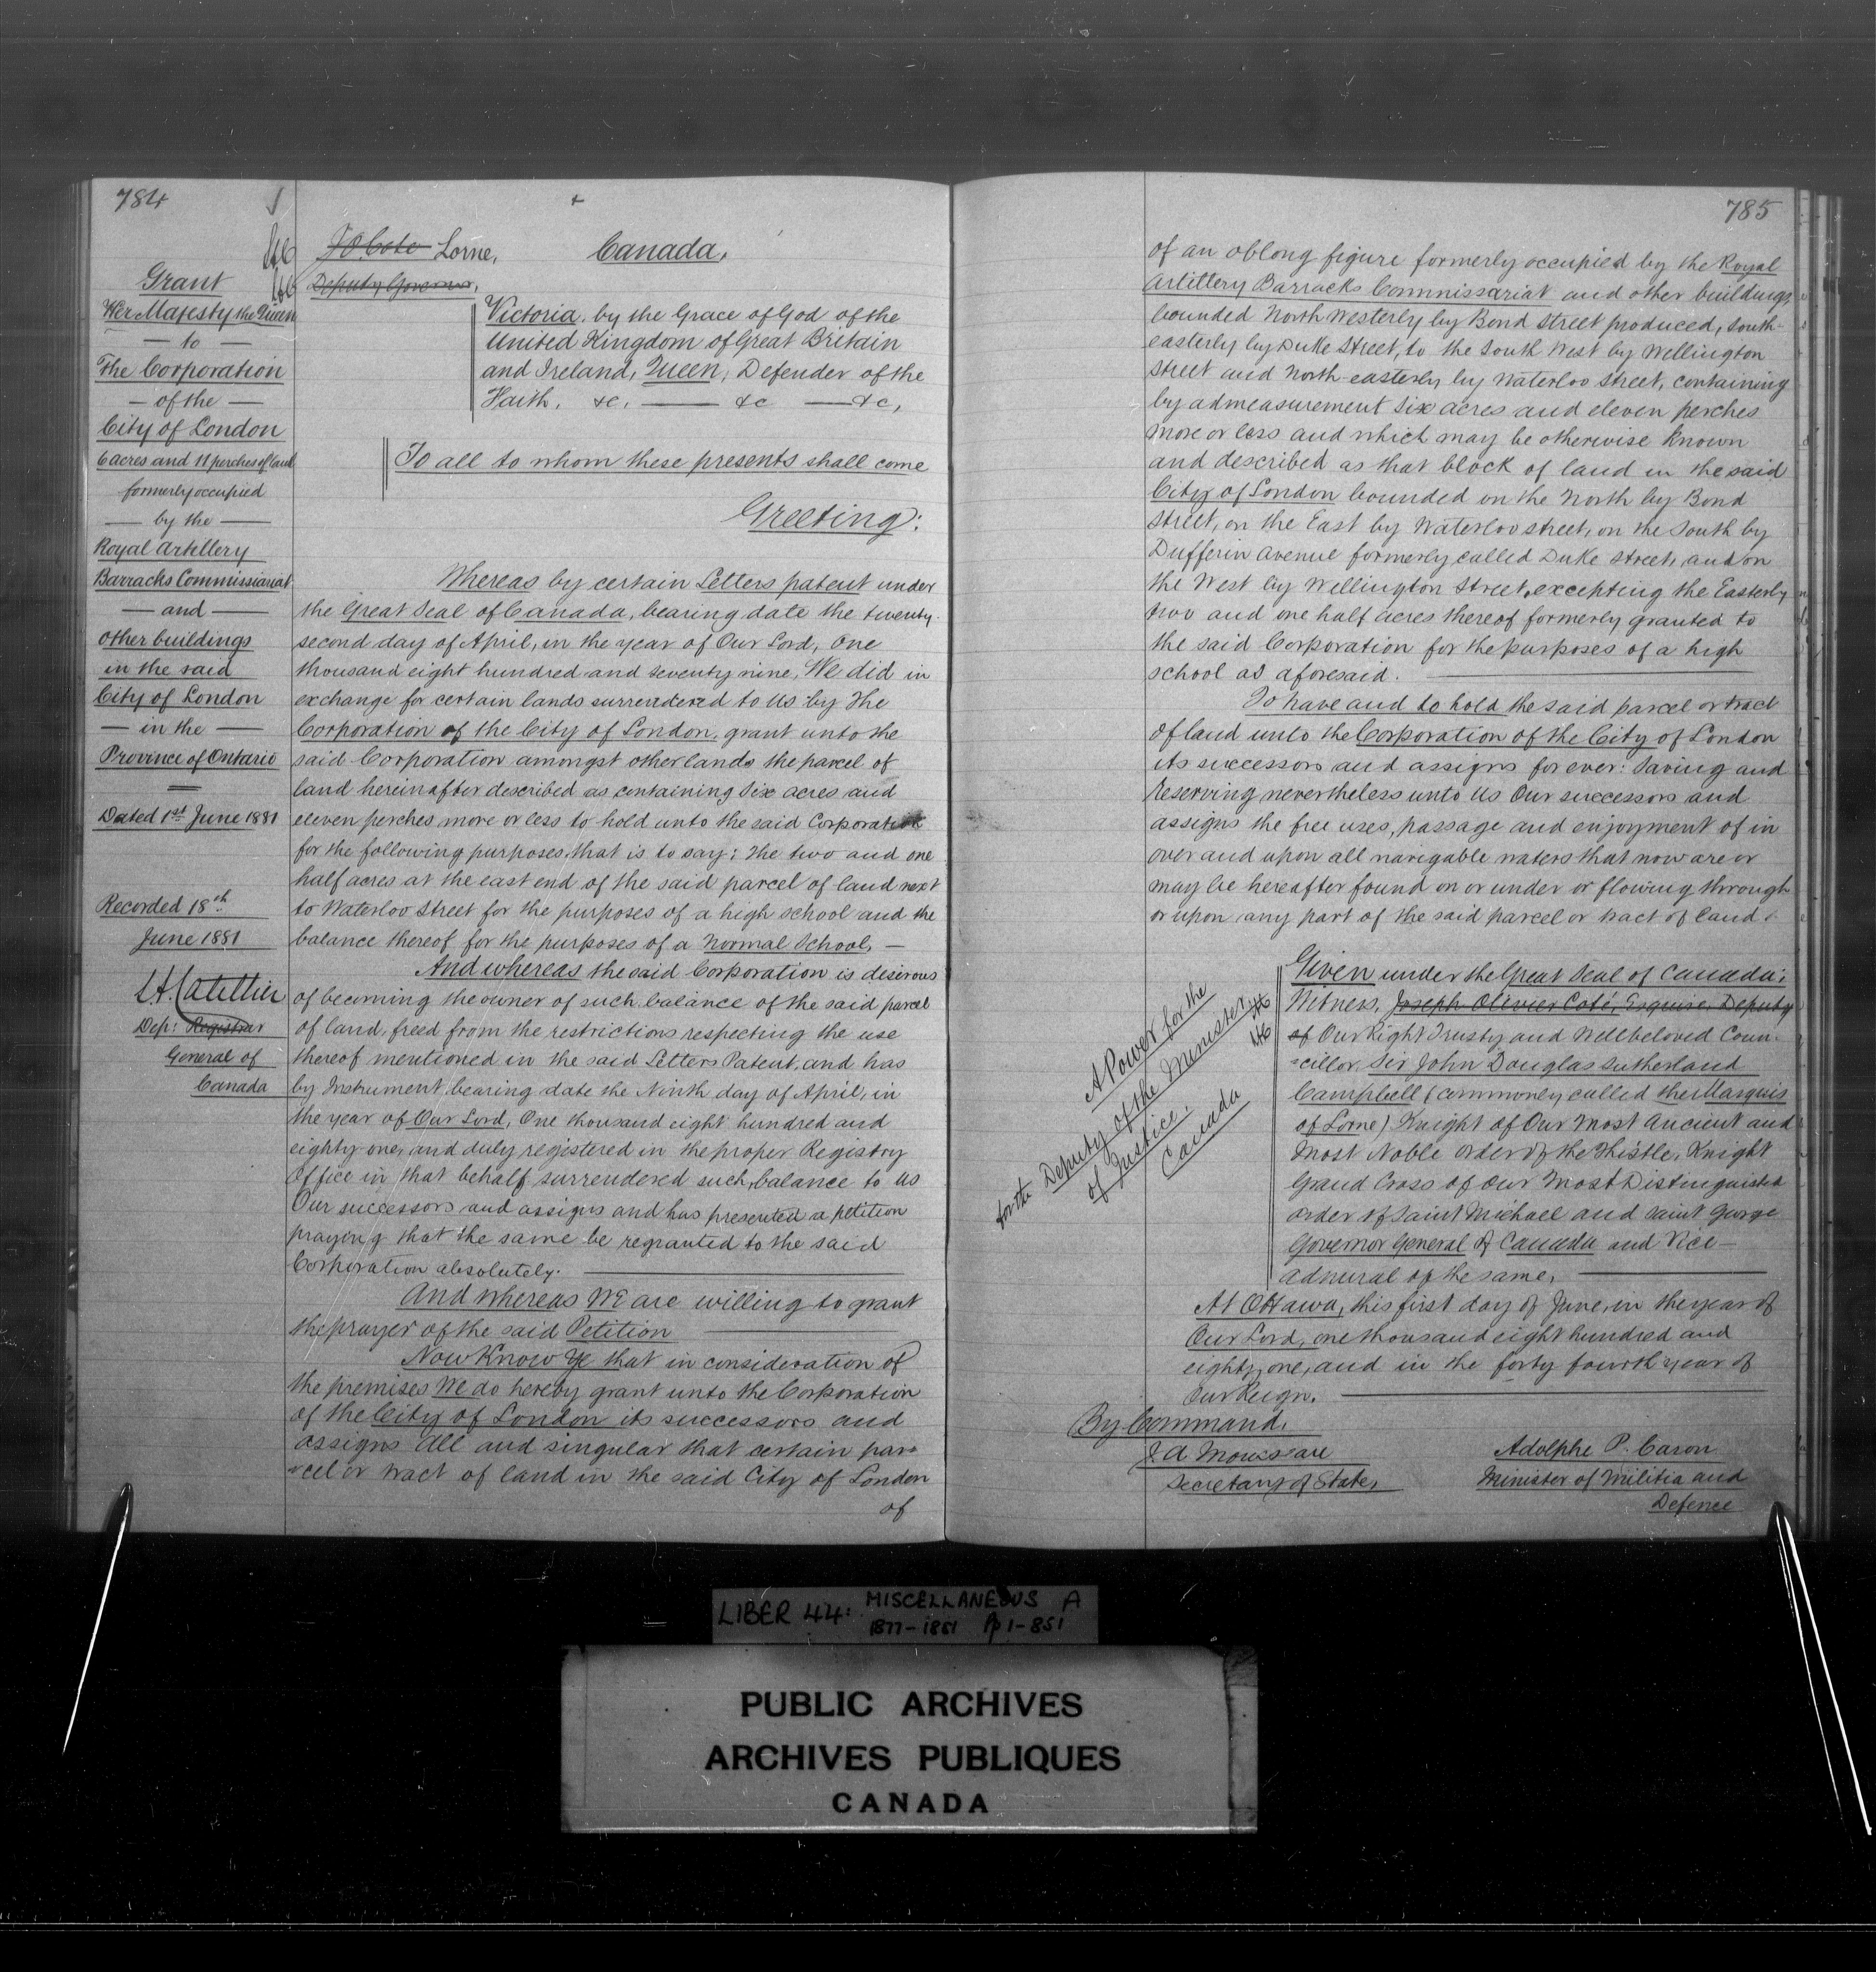 784
J O Coté Lorne, Canada,
Deputy Governor,
Grant
Her Majesty the Queen
— to —
The Corporation
— of the —
City of London
6 acres and 11 perches of land
formerly occupied
— by the —
Royal Artillery
Barracks Commissariat
— and —
other buildings
in the said
City of London
— in the —
Province of Ontario
Dated 1st June 1881
Recorded 18th
June 1881
Dep: Registrar
General of
Canada
Victoria, by the Grace of God of the
United Kingdom of Great Britain
and Ireland, Queen, Defender of the
Faith, &c, — &c — &c,
To all to whom these presents shall come
Greeting:
Whereas by certain Letters patent under
the Great Seal of Canada, bearing date the twenty-
second day of April, in the year of Our Lord, One
thousand eight hundred and seventy nine, We did in
exchange for certain lands surrendered to Us by The
Corporation of the City of London, grant unto the
said Corporation amongst other lands the parcel of
land hereinafter described as containing Six acres and
eleven perches more or less to hold unto the said Corporation
for the following purposes, that is to say: The two and one
half acres at the east end of the said parcel of land next
to Waterloo Street for the purposes of a high school and the
balance thereof for the purposes of a Normal School, —
And whereas the said Corporation is desirous
of becoming the owner of such balance of the said parcel
of land, freed from the restrictions respecting the use
thereof mentioned in the said Letters Patent, and has
by Instrument, bearing date the Ninth day of April, in
the year of Our Lord, One thousand eight hundred and
eighty one, and duly registered in the proper Registry
Office in that behalf surrendered such balance to Us
Our successors and assigns and has presented a petition
praying that the same be regranted to the said
Corporation absolutely. —
And whereas We are willing to grant
the prayer of the said Petition —
Now Know Ye that in consideration of
the premises We do hereby grant unto the Corporation
of the City of London its successors and
assigns All and singular that certain par=
=cel or tract of land in the said City of London
of
785
of an oblong figure formerly occupied by the Royal
Artillery Barracks Commissariat and other buildings,
bounded North Westerly by Bond Street produced, South-
easterly by Duke Street, to the South West by Wellington
Street and North-easterly by Waterloo Street, containing
by admeasurement Six acres and eleven perches
more or less and which may be otherwise known
and described as that block of land in the said
City of London bounded on the North by Bond
Street, on the East by Waterloo Street, on the South by
Dufferin Avenue formerly called Duke Street, and on
the West by Wellington Street, excepting the Easterly
two and one half acres thereof formerly granted to
the said Corporation for the purposes of a high
school as aforesaid. —
To have and to hold the said parcel or tract
of land unto the Corporation of the City of London
its successors and assigns for ever: Saving and
Reserving nevertheless unto Us Our successors and
assigns the free uses, passage and enjoyment of in
over and upon all navigable waters that now are or
may be hereafter found on or under or flowing through
or upon any part of the said parcel or tract of land.
A Power for the
Deputy of the Minister
of Justice,
Canada
Given under the Great Seal of Canada:
Witness, Joseph Olivier Coté, Esquire, Deputy
of Our Right Trusty and Wellbeloved Coun-
=cillor, Sir John Douglas Sutherland
Campbell (commonly called the Marquis
of Lorne) Knight of Our Most Ancient and
Most Noble Order of the Thistle, Knight
Grand Cross of Our Most Distinguished
Order of Saint Michael and Saint George
Governor General of Canada and Vice-
Admiral of the same, —
At Ottawa, this first day of June, in the year of
Our Lord, one thousand eight hundred and
eighty, one, and in the forty fourth year of
Our Reign. —
By Command,
J. A. Mousseau
Secretary of State,
Adolphe P. Caron
Minister of Militia and
Defence
LIBER 44: MISCELLANEOUS A
1877-1881 Pp 1-851
PUBLIC ARCHIVES
ARCHIVES PUBLIQUES
CANADA